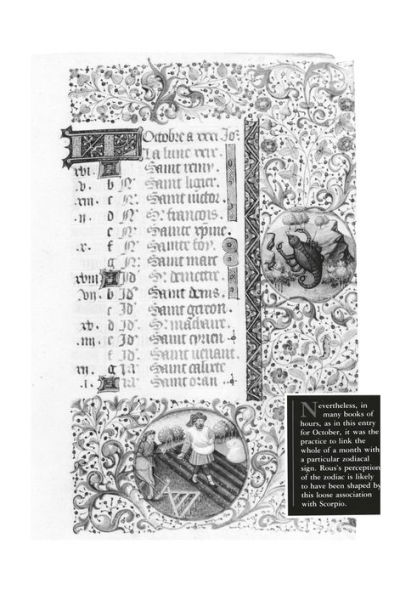 Octobre a xxxi Jo:
La lune xxix.
xvi. A Saint remy
v. b N Saint ligier.
xiii c N Saint victor.
ii d N S. francois.
e N Saincte
x. f N Sainte foy.
g N Saint marc
xviii A Jd S. demettre.
vii b Jd Saint denis.
c Jd Saint gereon.
xv. d Jd S.
iiii. e Jd Saint
f Jd Saint venant.
xii g Saint calixte
i. A Saint
Nevertheless, in
many books of
hours, as in this entry
for October, it was the
practice to link the
whole of a month with
a particular zodiacal
sign. Rous's perception
of the zodiac is likely
to have been shaped by
this loose association
with Scorpio.